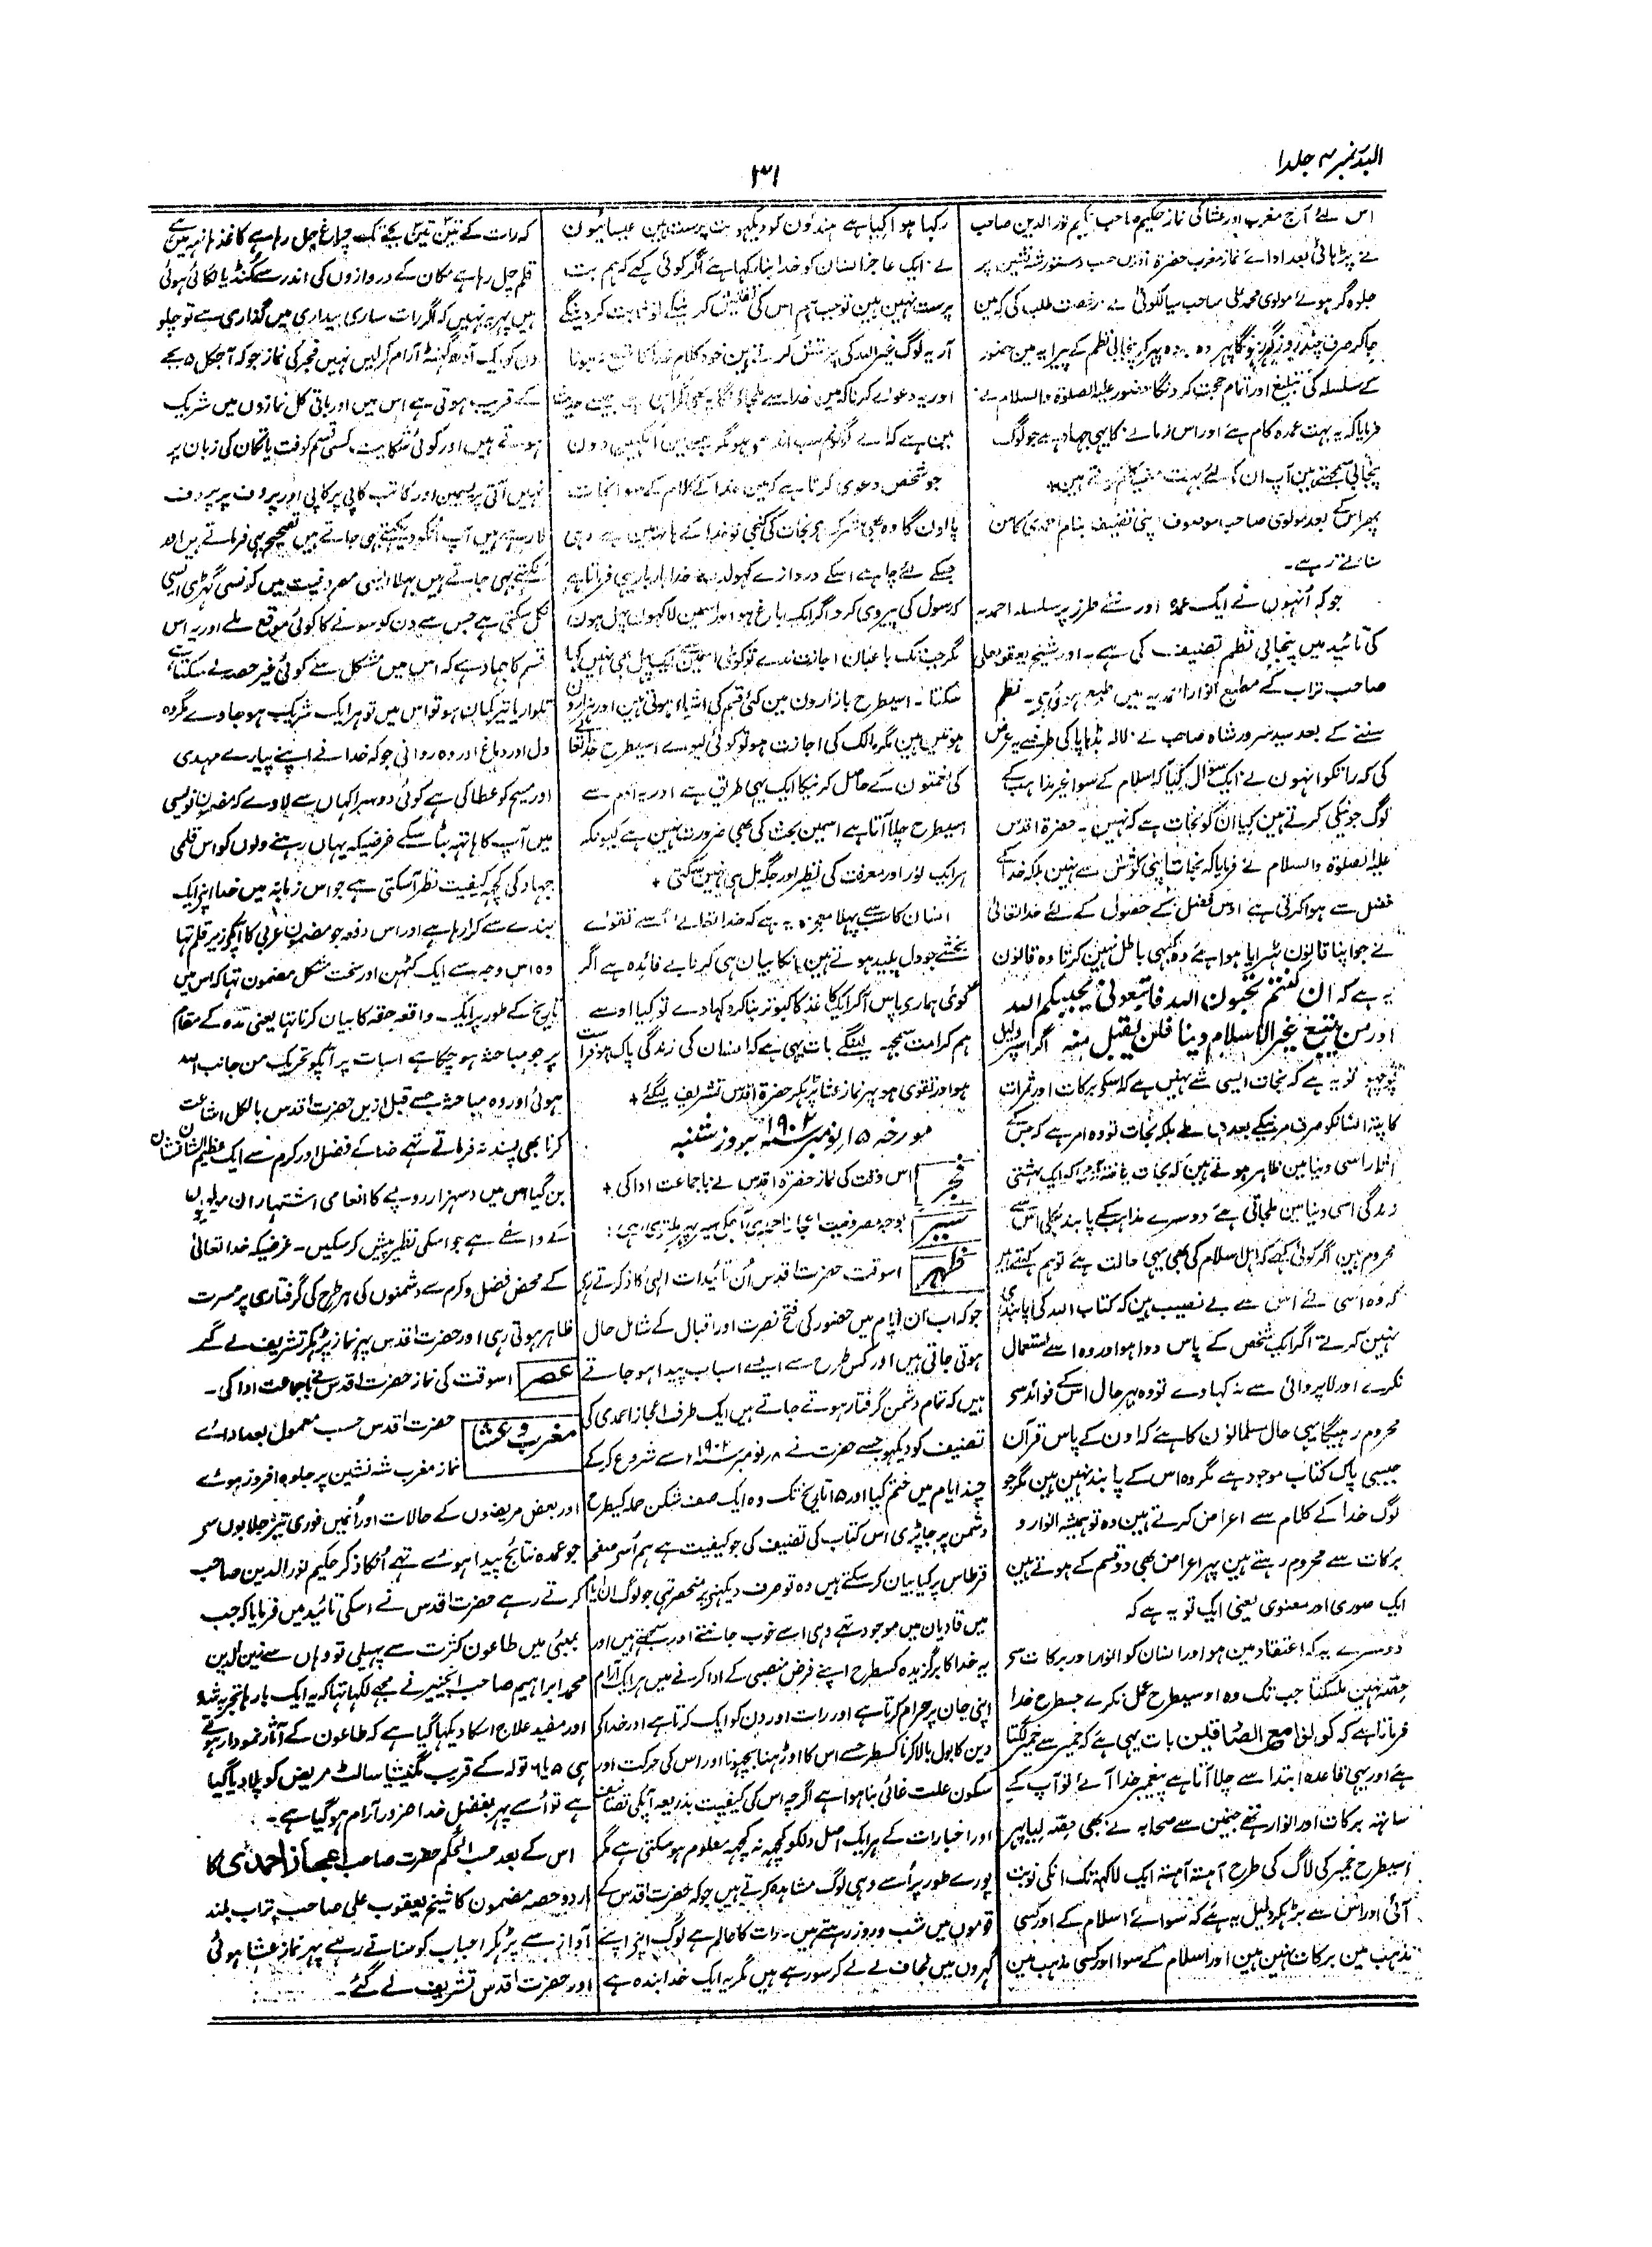 البدر نمبر ۴ جلد ۱
۳۱
اس لئے آج مغرب اور عشا کی نماز حکیم صاحب حکیم نور الدین صاحب
نے پڑہائی بعد اداے نماز مغرب حضرۃ اقدس حسب دستور شہ نشین پر
جلوہ گر ہوئے مولوی محمد علی صاحب سیالکوٹی نے رخصت طلب کی کہ مین
جاکر صرف چند روز گہر رہونگا پہر دہ بہ دہ پہر کر پنجابی نظم کے پیرایہ مین حضور
کے سلسلہ کی تبلیغ اور اتمام حجت کر دنگا حضور علیہ الصلوۃ والسلام نے
فرمایا کہ یہ بہت عمدہ کام ہے اور اس زمانے کا یہی جہاد ہے جو لوگ
پنجابی سمجہتے ہین آپ ان کے لئے بہت مفید کام کرتے ہین
پہر اس کے بعد مولوی صاحب موصوف اپنی تصنیف بنام احمدی کامن
سناتے رہے۔
جو کہ اُنہوں نے ایک عمدہ اور نئے طرز پر سلسلہ احمدیہ
کی تائید میں پنجابی نظم تصنیف کی ہے۔ اور شیخ یعقوب علی
صاحب تراب کے مطبع انوار احمدیہ میں طبع ہوئی ہی۔ نظم
سننے کے بعد سید سرور شاہ صاحب نے لالہ بڈہا پا کی طرف سے عرض
کی کہ رات کو انہون نے ایک سوال کیا کہ اسلام کے سوا غیر مذاہب کے
لوگ جو نیکی کرتے ہین کیا ان کو نجات ہے کہ نہیں۔ حضرۃ اقدس
علیہ الصلوۃ والسلام نے فرمایا کہ نجات اپنی کوشش سے نہین بلکہ خدا کے
فضل سے ہوا کرتی ہے اوس فضل کے حصول کے لئے خدا تعالیٰ
نے جو اپنا قانون ٹہرایا ہوا ہے وہ کبہی باطل نہین کرتا وہ قانون
یہ ہے کہ ان کنتم تحبون اللہ فاتبعونی یحببکم اللہ
اور من یبتغ غیر الاسلام دینا فلن یقبل منہ اگر اسپر دلیل
پوچہو تو یہ ہے کہ نجات ایسی شے نہیں ہے کہ اسکی برکات اور ثمرات
کا پتہ انسانکو صرف مرنیکے بعد ہی ملے بلکہ نجات تو وہ امر ہے کہ جسکے
آثار اسی دنیا مین ظاہر ہوتے ہین کہ نجات یافتہ آدمی کو ایک بہشتی
زندگی اسی دنیا مین ملجاتی ہے دوسرے مذاہب کے پابند بکلی اس سے
محروم ہین اگر کوئی کہے کہ اہل اسلام کی بھی یہی حالت ہے تو ہم کہتے ہیں
کہ وہ اسی لئے اس سے بے نصیب ہین کہ کتاب اللہ کی پابندی
نہین کرتے اگر ایک شخص کے پاس دوا ہو اور وہ اسے استعمال
نکرے اور لاپروائی سے نہ کہاوے تو وہ بہر حال اس کے فوائد سے
محروم رہیگا یہی حال مسلمانون کا ہے کہ اون کے پاس قرآن
جیسی پاک کتاب موجود ہے مگر وہ اس کے پابند نہین ہین مگر جو
لوگ خدا کے کلام سے اعراض کرتے ہین وہ تو ہمیشہ انوار و
برکات سے محروم رہتے ہین پہر اعراض بھی دو قسم کے ہوتے ہین
ایک صوری اور معنوی یعنی ایک تو یہ ہے کہ
دوسرے یہ کہ اعتقاد مین ہو اور انسان کو انوار اور برکات سے
حصہ نہین ملسکتا جب تک وہ اوسیطرح عمل نکرے جسطرح خدا
فرماتا ہے کہ کونوا مع الصادقین بات یہی ہے کہ خمیر سے خمیر لگتا
ہے اور یہی قاعدہ ابتدا سے چلا آتا ہے پیغمبر خدا آئے تو آپ کے
ساتہہ برکات اور انوار تہے جنمین سے صحابہ نے بھی حصہ لیا پہر
اسیطرح خمیر کی لاگ کی طرح آہستہ آہستہ ایک لاکہہ تک انکی نوبت
آئی اور اس سے بڑہکر دلیل یہ ہے کہ سوائے اسلام کے اور کسی
مذہب مین برکات نہین ہین اور اسلام کے سوا اور کسی مذہب مین
رکہا ہوا کیا ہے ہندؤن کو دیکہو بت پرست ہین عیسائیون
نے ایک عاجز انسان کو خدا بنا رکہا ہے اگر کوئی کہے کہ ہم بت
پرست نہین ہین تو جب ہم اس کی تفتیش کرینگے تو ثابت کردینگے
آریہ لوگ غیر اللہ کی پرستش کرتے ہین خود کلام خدا کا متبع نہونا
اور یہ دعوے کرنا کہ مین خدا سے ملجاؤنگا یہ بھی گمراہی ہے
جو شخص دعوی کرتا ہے کہ مین خدا کے کلام کے سوا نجات
پاؤن گا وہ بھی مشرک ہی نجات کی کنجی تو خدا کے ہاتہہ مین ہے وہی
جسکے لئے چاہے اسکے دروازے کہولدے خدا بار بار یہی فرماتا ہے
کہ رسول کی پیروی کرو اگر ایک باغ ہو اور اسمین لاکہون پہل ہون
مگر جب تک باغبان اجازت ندے تو کوئی اسمین سے ایک پہل بھی نہین کہا
سکتا۔ اسیطرح بازارون مین کئی قسم کی اشیاء ہوتی ہین اور ہزارون
ہوتین ہین مگر مالک کی اجازت ہو تو کوئی لیوے اسیطرح خدا تعالے
کی نعمتون کے حاصل کرنیکا ایک یہی طریق ہے اور یہ آدم سے
اسیطرح چلا آتا ہے اسمین بحث کی بھی ضرورت نہین ہے کیونکہ
ہر ایک نور اور معرفت کی نظیر اور جگہ مل ہی نہین سکتی +
انسان کا سب سے پہلا معجزہ یہ ہے کہ خدا تعالیٰ اسے تقوے
بخشے جو دل پلید ہوتے ہین انکا بیان ہی کرنا بے فائدہ ہے اگر
کوئی ہماری پاس آکر ایک کاغذ کا کبوتر بنا کر دکہادے تو کیا اوسے
ہم کرامت سمجہہ لینگے بات یہی ہے کہ انسان کی زندگی پاک ہو فراست
ہو اور تقوی ہو پہر نماز عشا پڑہکر حضرۃ اقدس تشریف لیگئے +
مورخہ ۱۵ نومبر ۱۹۰۲ء بروز شنبہ
فجر اس وقت کی نماز حضرۃ اقدس نے باجماعت ادا کی +
سیر بوجہ مصروفیت اعجاز احمدی آجکل سیر پہر ملتوی رہی:
ظہر اسوقت حضرت اقدس اُن تائیدات الہی کا ذکر کرتے رہی
جو کہ اب ان ایام میں حضور کی فتح نصرت اور اقبال کے شامل حال
ہوتی جاتی ہیں اور کس طرح سے ایسے اسباب پیدا ہو جاتے
ہیں کہ تمام دشمن گرفتار ہوتے جاتے ہیں ایک طرف اعجاز احمدی کی
تصنیف کو دیکہو جسے حضرت نے ۸ نومبر ۱۹۰۲ء سے شروع کرکے
چند ایام میں ختم کیا اور ۱۵ تاریخ تک وہ ایک صف شکن حملہ کیطرح
دشمن پر جا پڑی اس کتاب کی تصنیف کی جو کیفیت ہے ہم اُسے صفحہ
قرطاس پر کیا بیان کر سکتے ہیں وہ تو صرف دیکہنی پر منحصر تہی جو لوگ ان ایام
میں قادیان میں موجود تہے وہی اسے خوب جانتے اور سمجہتے ہیں اور
یہ خدا کا برگزیدہ کسطرح اپنے فرض منصبی کے ادا کرنے میں ہر ایک آرام
اپنی جان پر حرام کرتا ہے اور رات اور دن کو ایک کرتا ہے اور خدا کی
دین کا بول بالا کرنا کسطرح سے اس کا اوڑہنا بچہونا اور اس کی حرکت اور
سکون علت غائی بنا ہوا ہے اگرچہ اس کی کیفیت بذریعہ آپکی تصانیف
اور اخبارات کے ہر ایک اہل دلکو کچہہ نہ کچہہ معلوم ہو سکتی ہے مگر
پورے طور پر اُسے وہی لوگ مشاہدہ کرتے ہیں جو کہ حضرت اقدس کے
قدموں میں شب و روز رہتے ہیں۔ رات کا عالم ہے لوگ اپنے اپنے
گہروں میں لحاف لے لے کر سو رہے ہیں مگر یہ ایک خدا بندہ ہے
کہ رات کے تین تین بجے تک چراغ جل رہا ہے کاغذ ہاتہہ میں ہے
قلم چل رہا ہے مکان کے دروازوں کی اندر سے کنڈیا لگائی ہوئی
ہیں پہر یہ نہیں کہ اگر رات ساری بیداری میں گذاری ہے تو چلو
دن کو ایک آدھ گہنٹہ آرام کرلیں نہیں فجر کی نماز جو کہ آجکل ۵ بجے
کے قریب ہوتی ہے اس میں اور باقی کل نمازوں میں شریک
ہوتے ہیں اور کوئی شکایت کسی قسم کوفت یا تکان کی زبان پر
نہیں آتی پریسمین اور کاتب کاپی پر کاپی اور پروف پر پروف
لا رہے ہیں آپ انکو دیکہتے ہی جاتے ہیں تصحیح بہی فرماتے ہیں اور
لکہتے بہی جاتے ہیں بہلا ایسی مصروفیت میں کونسی گہڑی ایسی
نکل سکتی ہے جس سے دن کو سونے کا کوئی موقع ملے اور یہ اس
قسم کا جہاد ہے کہ اس میں مشکل سے کوئی غیر حصہ لے سکتا ہے
تلوار یا تیر کمان ہو تو اس میں تو ہر ایک شریک ہو جاوے مگر وہ
دل اور دماغ اور وہ روانی جو کہ خدا نے اپنے پیارے مہدی
اور مسیح کو عطا کی ہے کوئی دوسرا کہاں سے لاوے کہ مضمون نویسی
میں آپ کا ہاتہہ بٹا سکے غرضیکہ یہاں رہنے والوں کو اس قلمی
جہاد کی کچہہ کیفیت نظر آسکتی ہے جو اس زمانہ میں خدا اپنے ایک
بندے سے کرا رہا ہے اور اس دفعہ جو مضمون عربی کا آپکی زیر قلم تہا
وہ اس وجہ سے ایک کٹہن اور سخت مشکل مضمون تہا کہ اس میں
تاریخ کے طور پر ایک واقعہ حقہ کا بیان کرنا تہا یعنی مُدّ کے مقام
پر جو مباحثہ ہو چکا ہے اسبات پر آپکو تحریک من جانب اللہ
ہوئی اور وہ مباحثہ جسے قبل ازیں حضرت اقدس بالکل اشاعت
کرنا بھی پسند نہ فرماتے تہے خدا کے فضل اور کرم سے ایک عظیم الشان نشان
بن گیا جس میں دس ہزار روپے کا انعامی اشتہار ان مولویوں
کے واسطے ہے جو اسکی نظیر پیش کرسکیں۔ غرضیکہ خدا تعالیٰ
کے محض فضل و کرم سے دشمنوں کی ہر طرح کی گرفتاری پر مسرت
ظاہر ہوتی رہی اور حضرت اقدس پہر نماز پڑہکر تشریف لے گئے
عصر اسوقت کی نماز حضرت اقدس نے باجماعت ادا کی۔
مغرب و عشا حضرت اقدس حسب معمول بعد ادائے
نماز مغرب شہ نشین پر جلوہ افروز ہوئے
اور بعض مریضوں کے حالات اور اُنہیں فوری تیز جلابوں سے
جو عمدہ نتائج پیدا ہوئے تہے اُنکا ذکر حکیم نور الدین صاحب
کرتے رہے حضرت اقدس نے اسکی تائید میں فرمایا کہ جب
بمبئی میں طاعون کثرت سے پہیلی تو وہاں سے زین الدین
محمد ابراہیم صاحب انجنیر نے مجہے لکہا تہا کہ یہ ایک بارہا تجربہ شدہ
اور مفید علاج اسکا دیکہا گیا ہے کہ طاعون کے آثار نمودار ہوتے
ہی ۵ یا ۶ تولہ کے قریب مگنیشیا سالٹ مریض کو پلا دیا گیا
ہے تو اُسے پہر بفضل خدا ضرور آرام ہوگیا ہے۔
اس کے بعد حسب الحکم حضرت صاحب اعجاز احمدی کا
اردو حصہ مضمون کا شیخ یعقوب علی صاحب تراب بلند
آواز سے پڑہکر احباب کو سناتے رہے پہر نماز عشا ہوئی
اور حضرت اقدس تشریف لے گئے۔